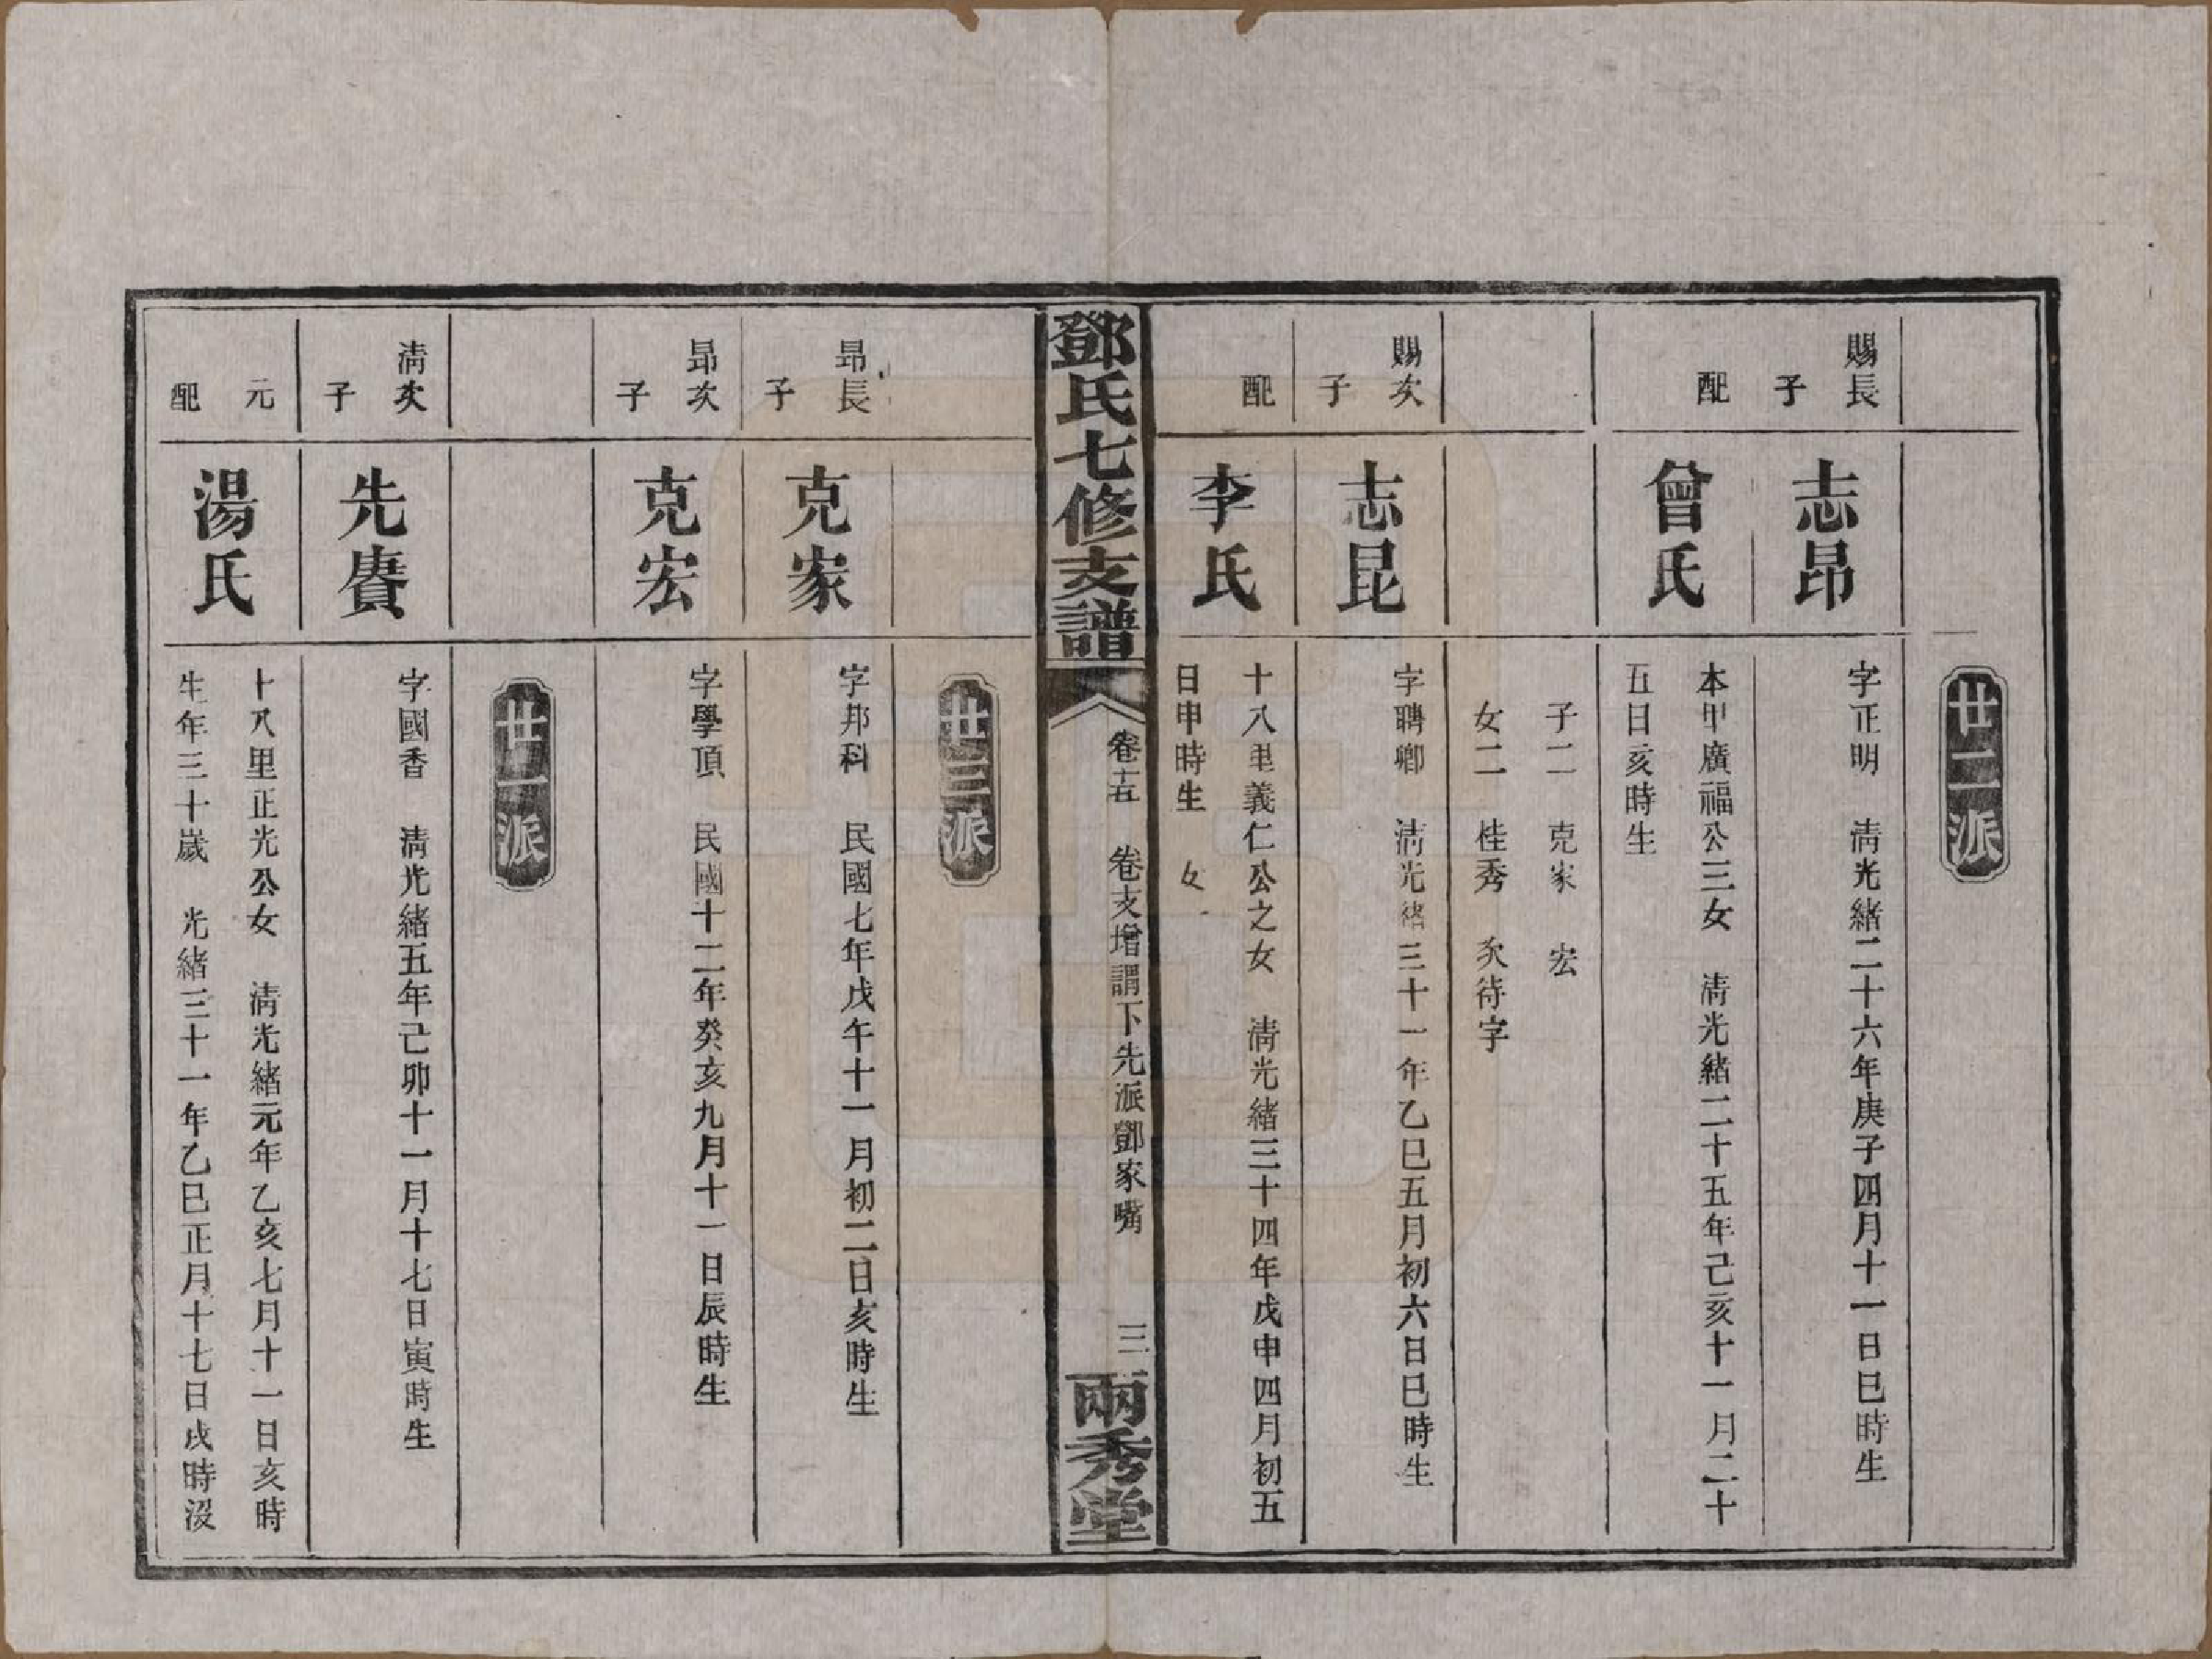 廿二派
賜長子
志昂
字正明　清光緒二十六年庚子四月十一日巳時生
配
曾氏
本甲廣福公三女　清光緒二十五年己亥十一月二十
五日亥時生
子二　克家　宏
女二　桂秀　次待字
賜次子
志昆
字聘卿　清光緒三十一年乙巳五月初六日巳時生
配
李氏
十八里義仁公之女　清光緒三十四年戊申四月初五
日申時生　女
鄧氏七修支譜
卷十五　卷支增謂下先派鄧家嘴
三
兩秀堂
廿三派
昂長子
克家
字邦科　民國七年戊午十一月初二日亥時生
昂次子
克宏
字學頂　民國十二年癸亥九月十一日辰時生
廿一派
清次子
先賡
字國香　清光緒五年己卯十一月十七日寅時生
元配
湯氏
十八里正光公女　清光緒元年乙亥七月十一日亥時
生年三十歲　光緒三十一年乙巳正月十七日戌時沒